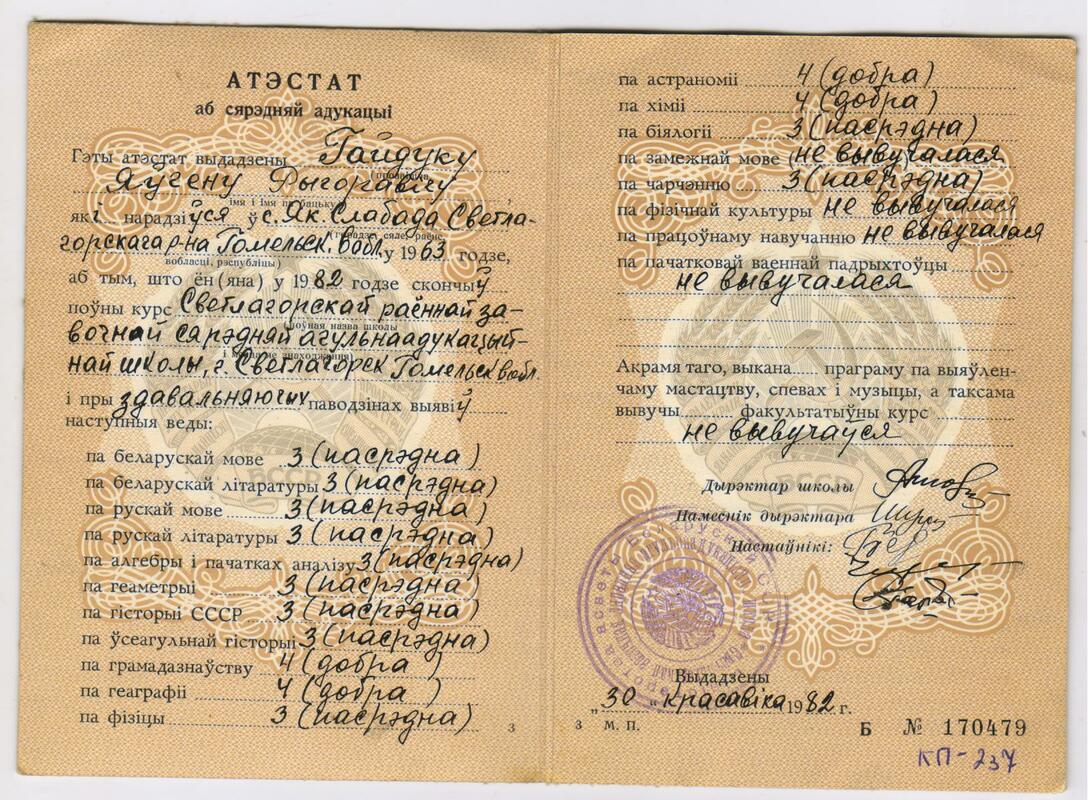 АТЭСТАТ
аб сярэдняй адукацыі
Гэты атэстат выдадзены Гайдуку
(прозвішча)
Яўгену Рыгоравічу
імя і імя па бацьку
які нарадзіўся ў с. Як. Слабада Светла-
горскага р-на Гомельск. вобл. у 1963 годзе,
вобласці, рэспублікі)
аб тым, што ён (яна) у 1982 годзе скончыў
поўны курс Светлагорскай раённай за-
(поўная назва школы
вочнай сярэдняй агульнаадукацый-
і месца знаходжання)
най школы, г. Светлагорск Гомельск вобл.
і пры здавальняючых паводзінах выявіў
наступныя веды:
па беларускай мове 3 (пасрэдна)
па беларускай літаратуры 3 (пасрэдна)
па рускай мове 3 (пасрэдна)
па рускай літаратуры 3 (пасрэдна)
па алгебры і пачатках аналізу 3 (пасрэдна)
па геаметрыі 3 (пасрэдна)
па гісторыі СССР 3 (пасрэдна)
па ўсеагульнай гісторыі 3 (пасрэдна)
па грамадазнаўству 4 (добра)
па геаграфіі 4 (добра)
па фізіцы 3 (пасрэдна)
3
па астраноміі 4 (добра)
па хіміі 4 (добра)
па біялогіі 3 (пасрэдна)
па замежнай мове (не вывучалася)
па чарчэнню 3 (пасрэдна)
па фізічнай культуры не вывучалася
па працоўнаму навучанню не вывучалася
па пачатковай ваеннай падрыхтоўцы
не вывучалася
Акрамя таго, выкана праграму па выяўлен-
чаму мастацтву, спевах і музыцы, а таксама
вывучы факультатыўны курс
не вывучаўся
Дырэктар школы
Намеснік дырэктара
Настаўнікі:
Выдадзены
„30“ красавіка 1982 г.
3 М. П.
Б № 170479
КП-237